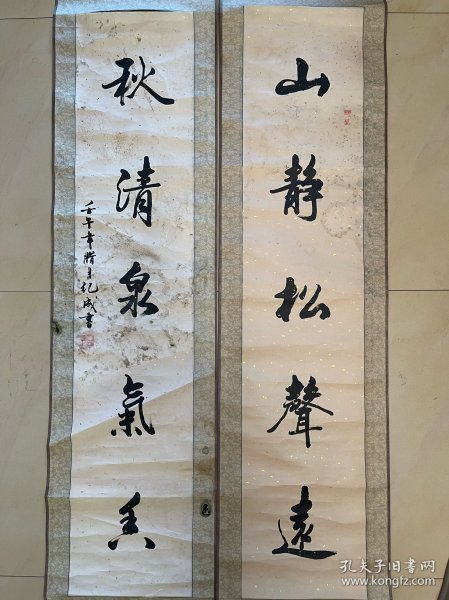 山靜松聲遠
秋清泉氣香
壬午年腊月纪成書
孔夫子旧书网
www.kongfz.com